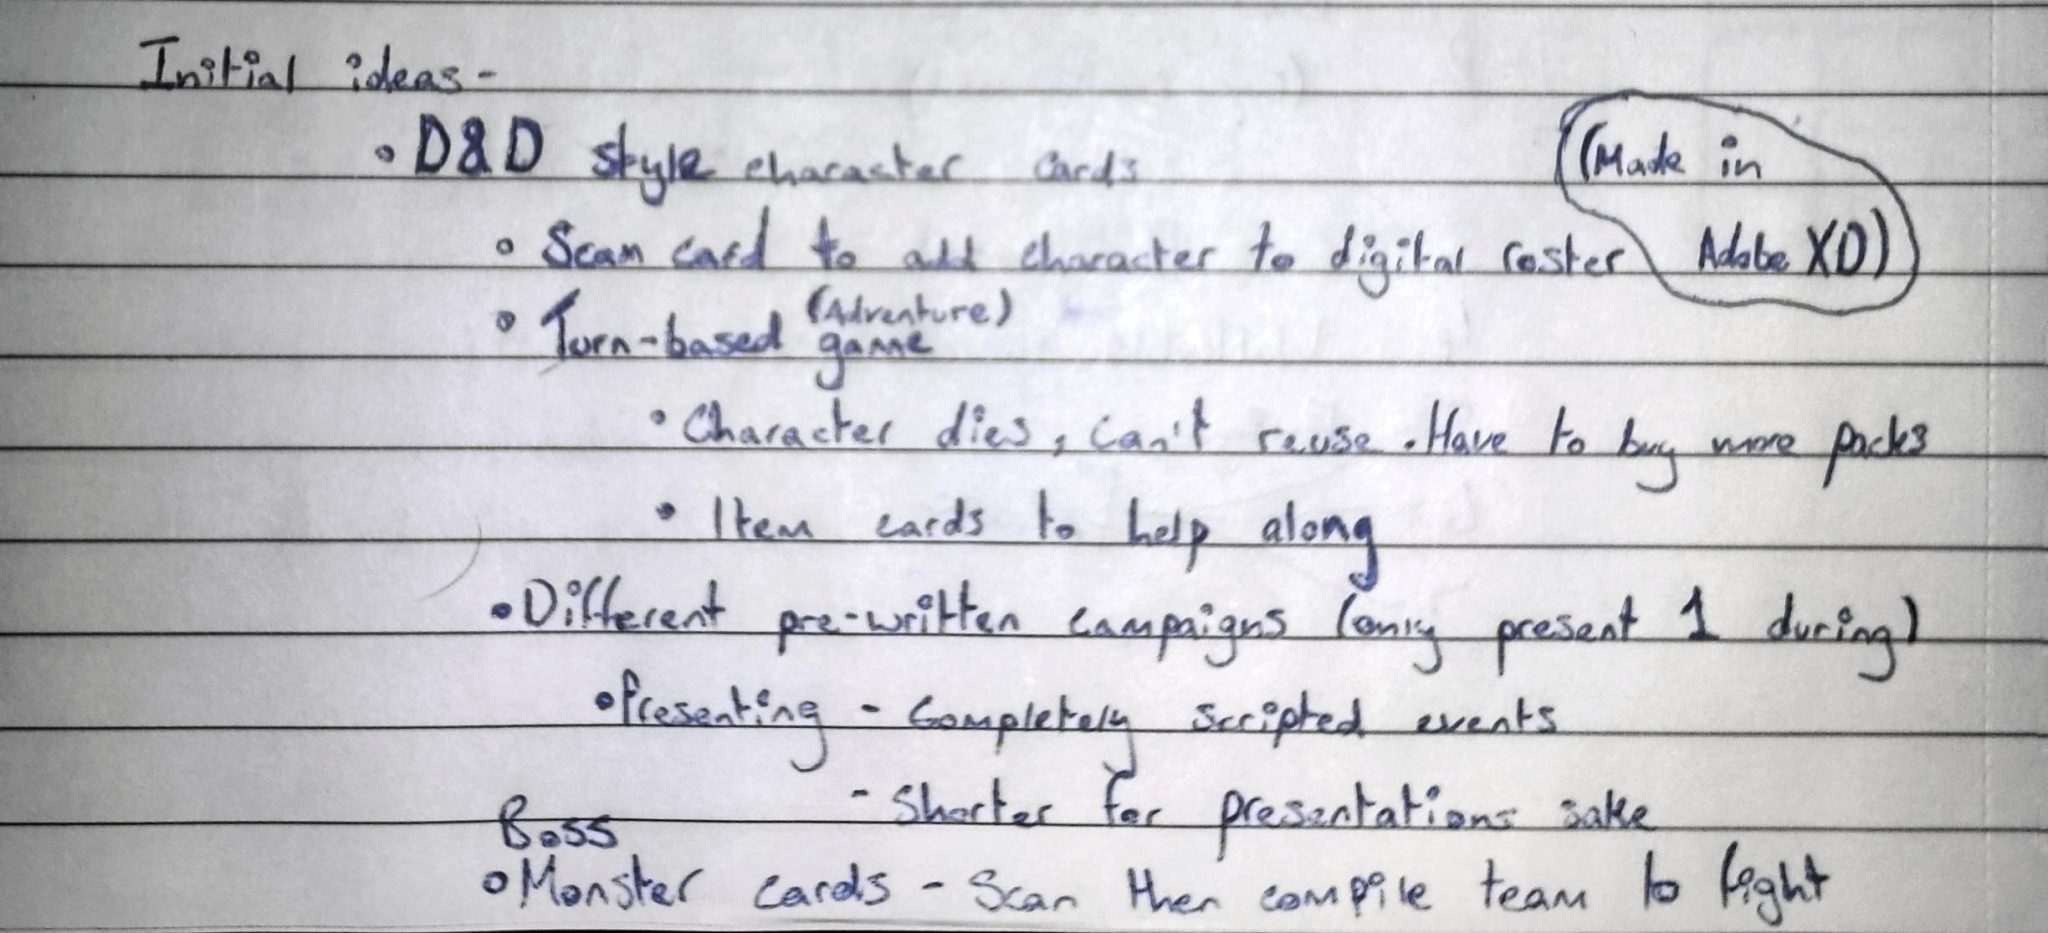 Initial ideas -
• D&D style character cards (Made in
• Scan card to add character to digital roster Adobe XD)
(Adventure)
• Turn-based game
• Character dies, can't reuse. Have to buy more packs
• Item cards to help along
• Different pre-written campaigns (only present 1 during)
• Presenting - Completely scripted events
- Shorter for presentations sake
Boss
• Monster cards - Scan then compile team to fight